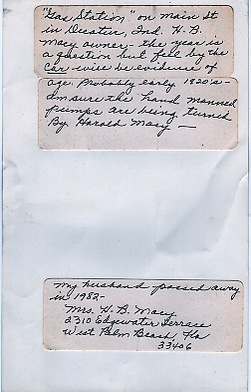 "Gas Station" on Main St
in Decatur, Ind. H. B.
Macy owner - the year is
a question but feel by the
car will be evidence of
age. Probably early 1920's -
am sure the hand manned
pumps are being turned
by Harold Macy -
My husband passed away
in 1982 -
Mrs. H. B. Macy
2310 Edgewater Terrace
West Palm Beach, Fla
33406